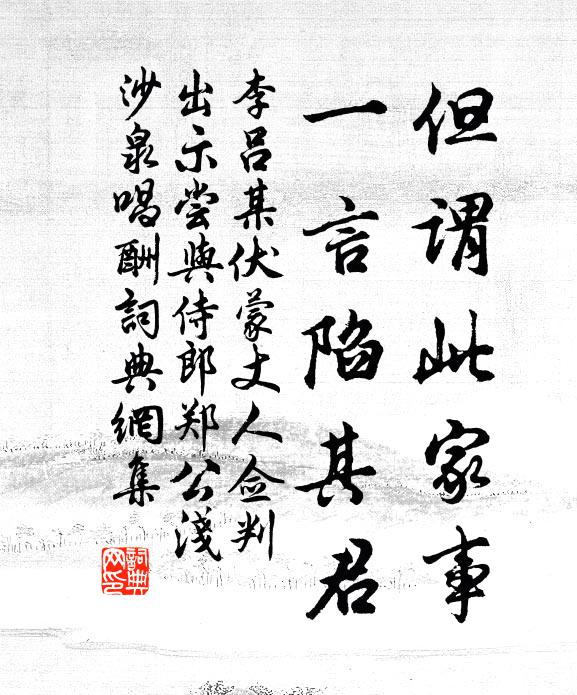 但谓此家事
一言陷其君
李吕某伏蒙丈人佥判
出示尝与侍郎郑公浅
沙泉唱酬词典网集
词典
网印